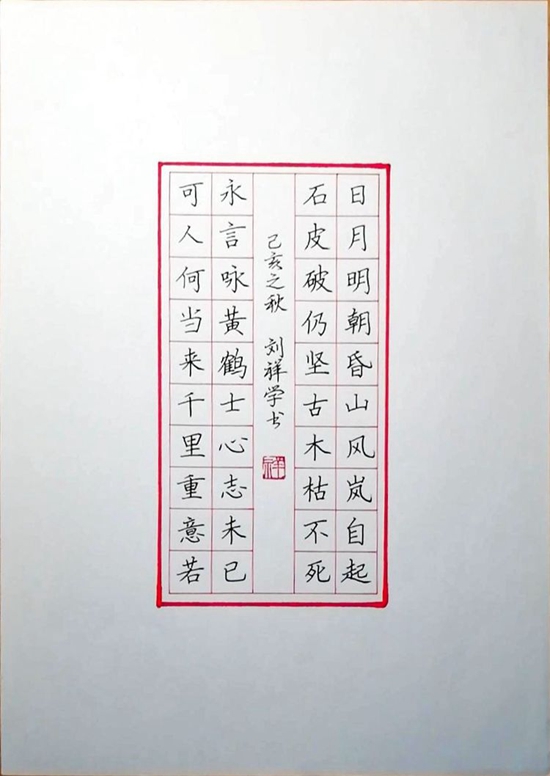 日月明朝昏山风岚自起
石皮破仍坚古木枯不死
可人何当来千里重意若
永言咏黄鹤士心志未已
己亥之秋 刘祥学书
祥